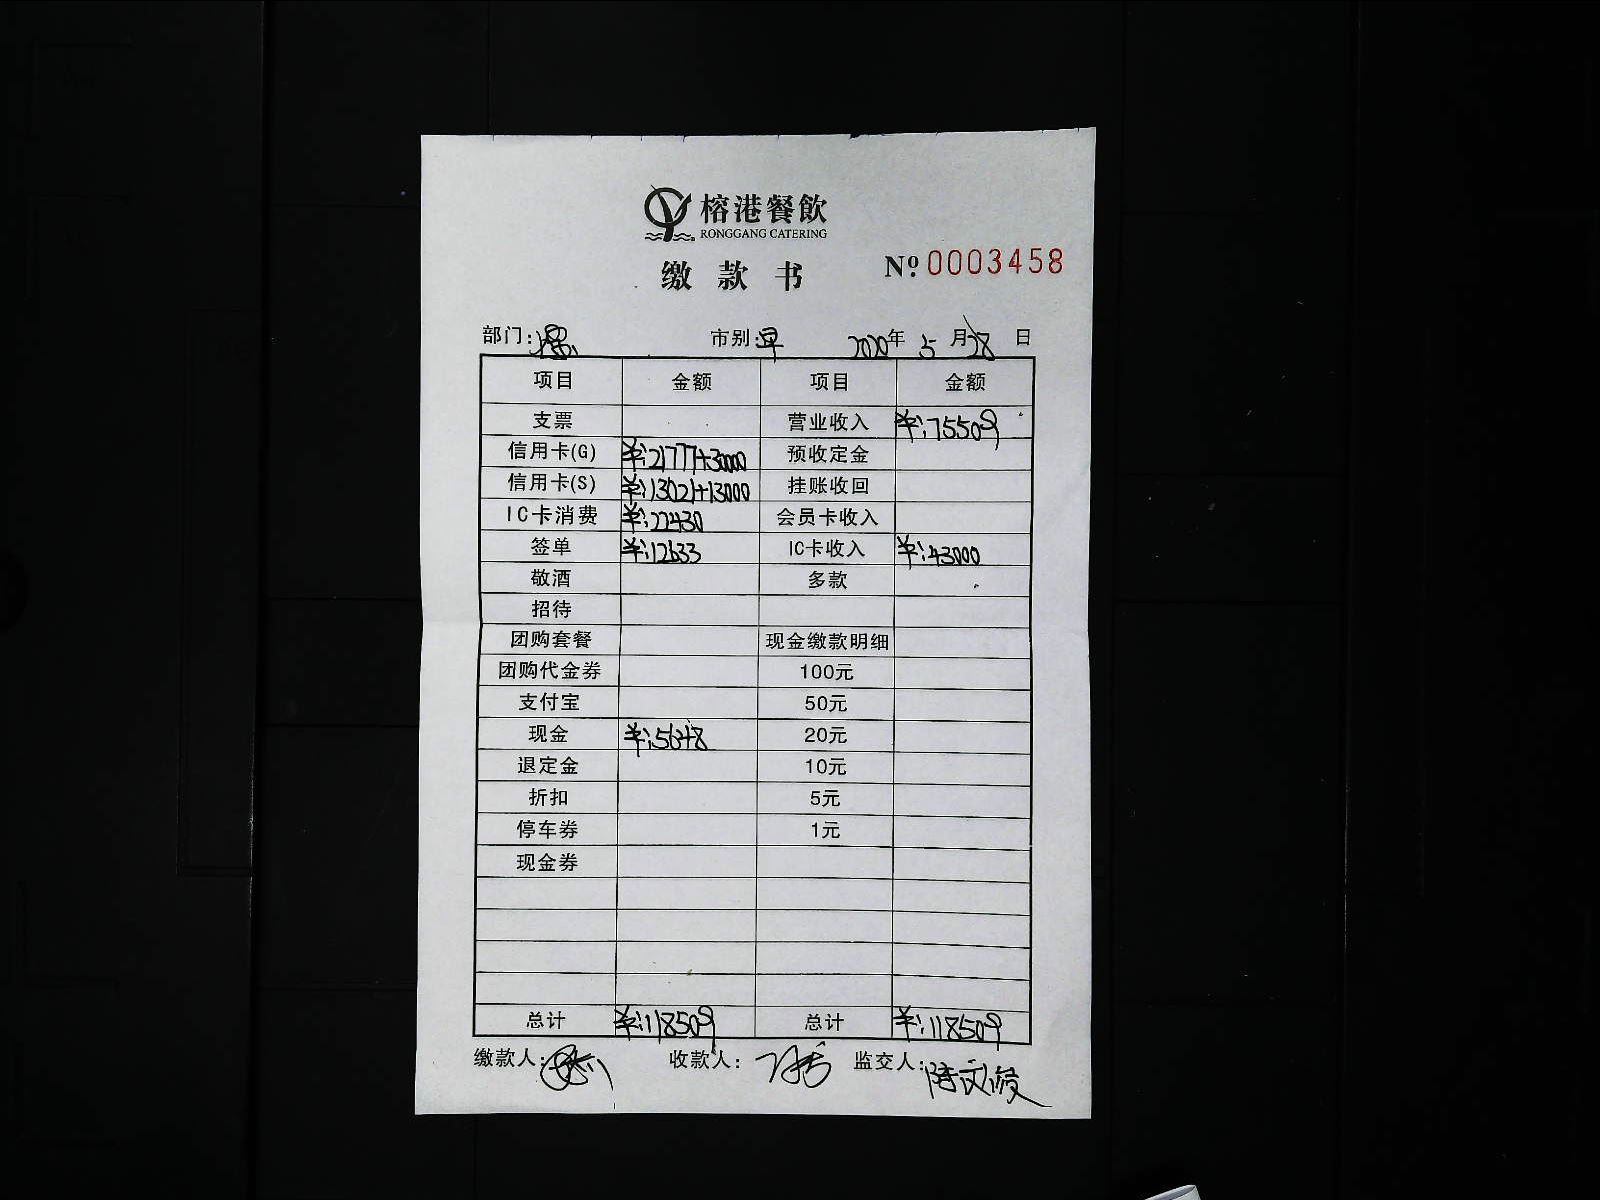 榕港餐飲
RONGGANG CATERING
缴款书 Nº. 0003458
部门: 市别:早 2020年 5月28日
项目 金额 项目 金额
支票 营业收入 ¥:75509
信用卡(G) ¥:21777+30000 预收定金
信用卡(S) ¥:13021+13000 挂账收回
IC卡消费 ¥:22430 会员卡收入
签单 ¥:12633 IC卡收入 ¥:43000
敬酒 多款
招待
团购套餐 现金缴款明细
团购代金券 100元
支付宝 50元
现金 ¥:5648 20元
退定金 10元
折扣 5元
停车券 1元
现金券
总计 ¥:118509 总计 ¥:118509
缴款人: 收款人: 监交人: